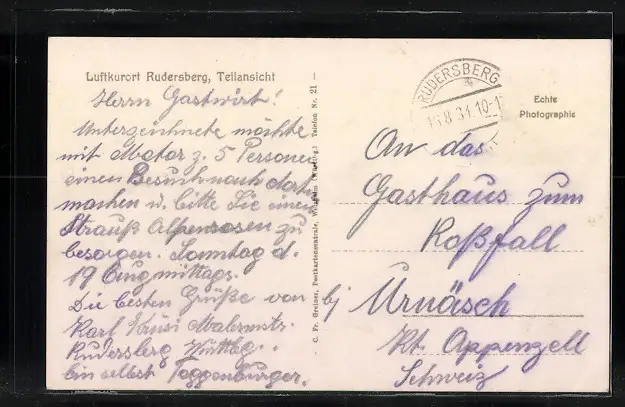 Luftkurort Rudersberg, Teilansicht
Herrn Gastwirt!
Unterzeichnete möchte
mit Motor z. 5 Personen
einen Besuch nach dort
machen u. bitte Sie einen
Strauß Alpenrosen zu
besorgen. Sonntag d.
19 Aug mittags.
Die besten Grüße von
Karl Malermstr.
Rudersberg Württbg.
Ein selbst Toggenburger.
C. Fr. Greiner, Postkartenzentrale, Telefon Nr. 21
RUDERSBERG
8 34 10-1
Echte
Photographie
An das
Gasthaus zum
Roßfall
bj Urnäsch
Kt. Appenzell
Schweiz